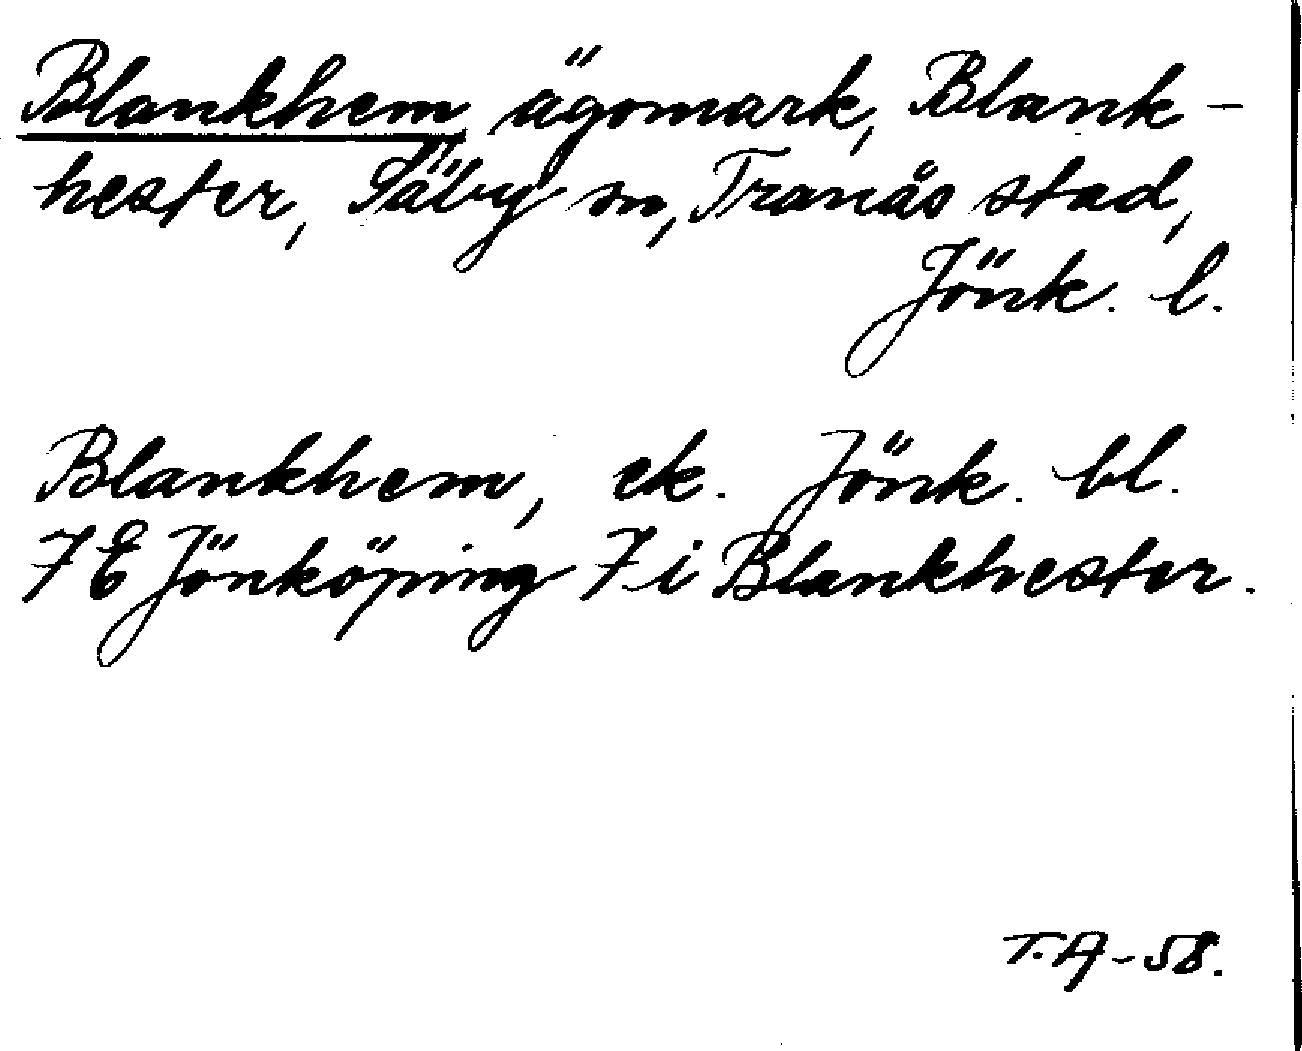 Blankhem, ägomark, Blank-
hester, Säby sn, Tranås stad,
Jönk. l.
Blankhem, ek. Jönk. bl.
7 E Jönköping 7 i Blankhester.
T.A-58.